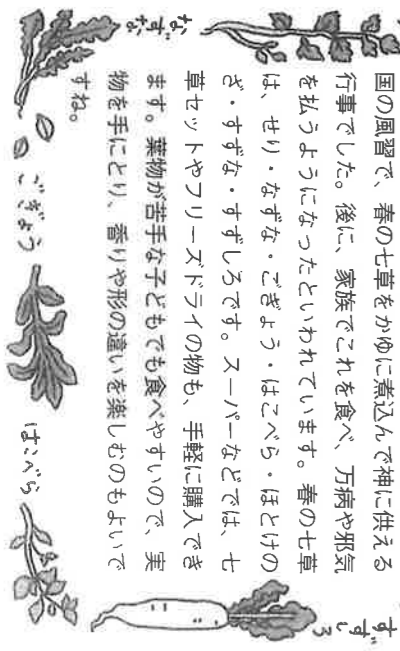 国の風習で、春の七草をかゆに煮込んで神に供える
行事でした。後に、家族でこれを食べ、万病や邪気
を払うようになったといわれています。春の七草
は、せり・なずな・ごぎょう・はこべら・ほとけの
ざ・すずな・すずしろです。スーパーなどでは、七
草セットやフリーズドライの物も、手軽に購入でき
ます。葉物が苦手な子どもでも食べやすいので、実
物を手にとり、香りや形の違いを楽しむのもよいで
すね。
なずな
ごぎょう
はこべら
すずしろ